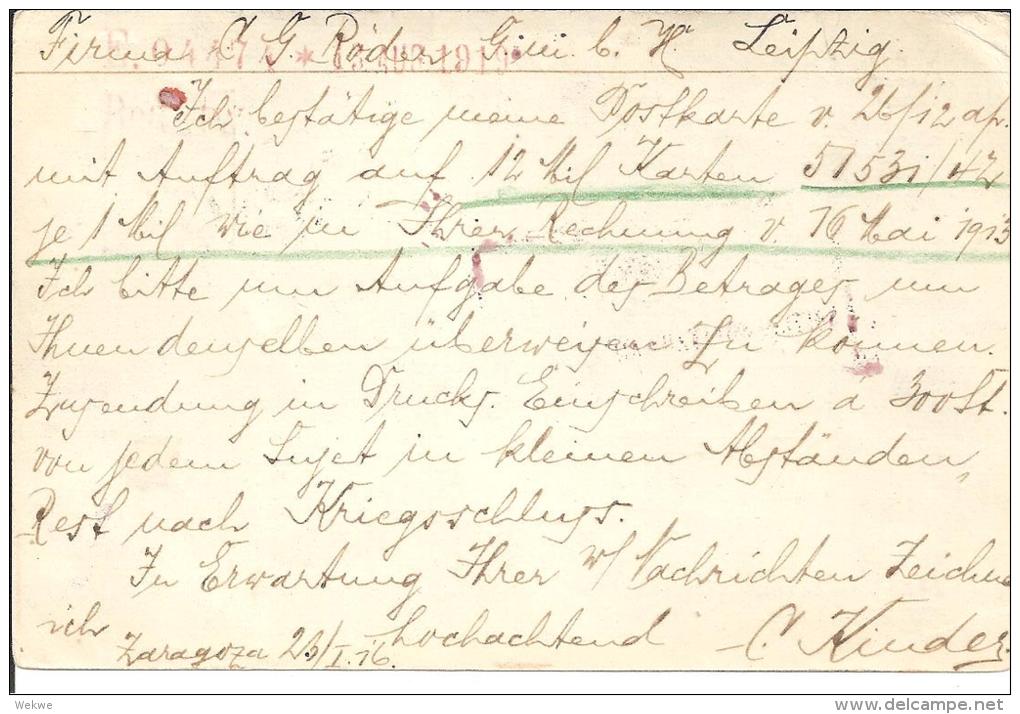 Firma C. G. Röder G.m.b.H. Leipzig.
Ich bestätige meine Postkarte v. 26/12 ap.
mit Auftrag auf 12 Mil Karten 51531/42
je 1 Mil wie in Ihrer Rechnung v. 16 Mai 1913
Ich bitte um Aufgabe des Betrages um
Ihnen denselben überweisen zu können.
Zusendung in Drucks. Einschreiben a 300 St.
von jedem Sujet in kleinen Abständen,
Rest nach Kriegsschluss.
In Erwartung Ihrer w/ Nachrichten Zeichne
ich hochachtend C. Kinder
Zaragoza 23/I.16.
Wekwe
delcampe.net